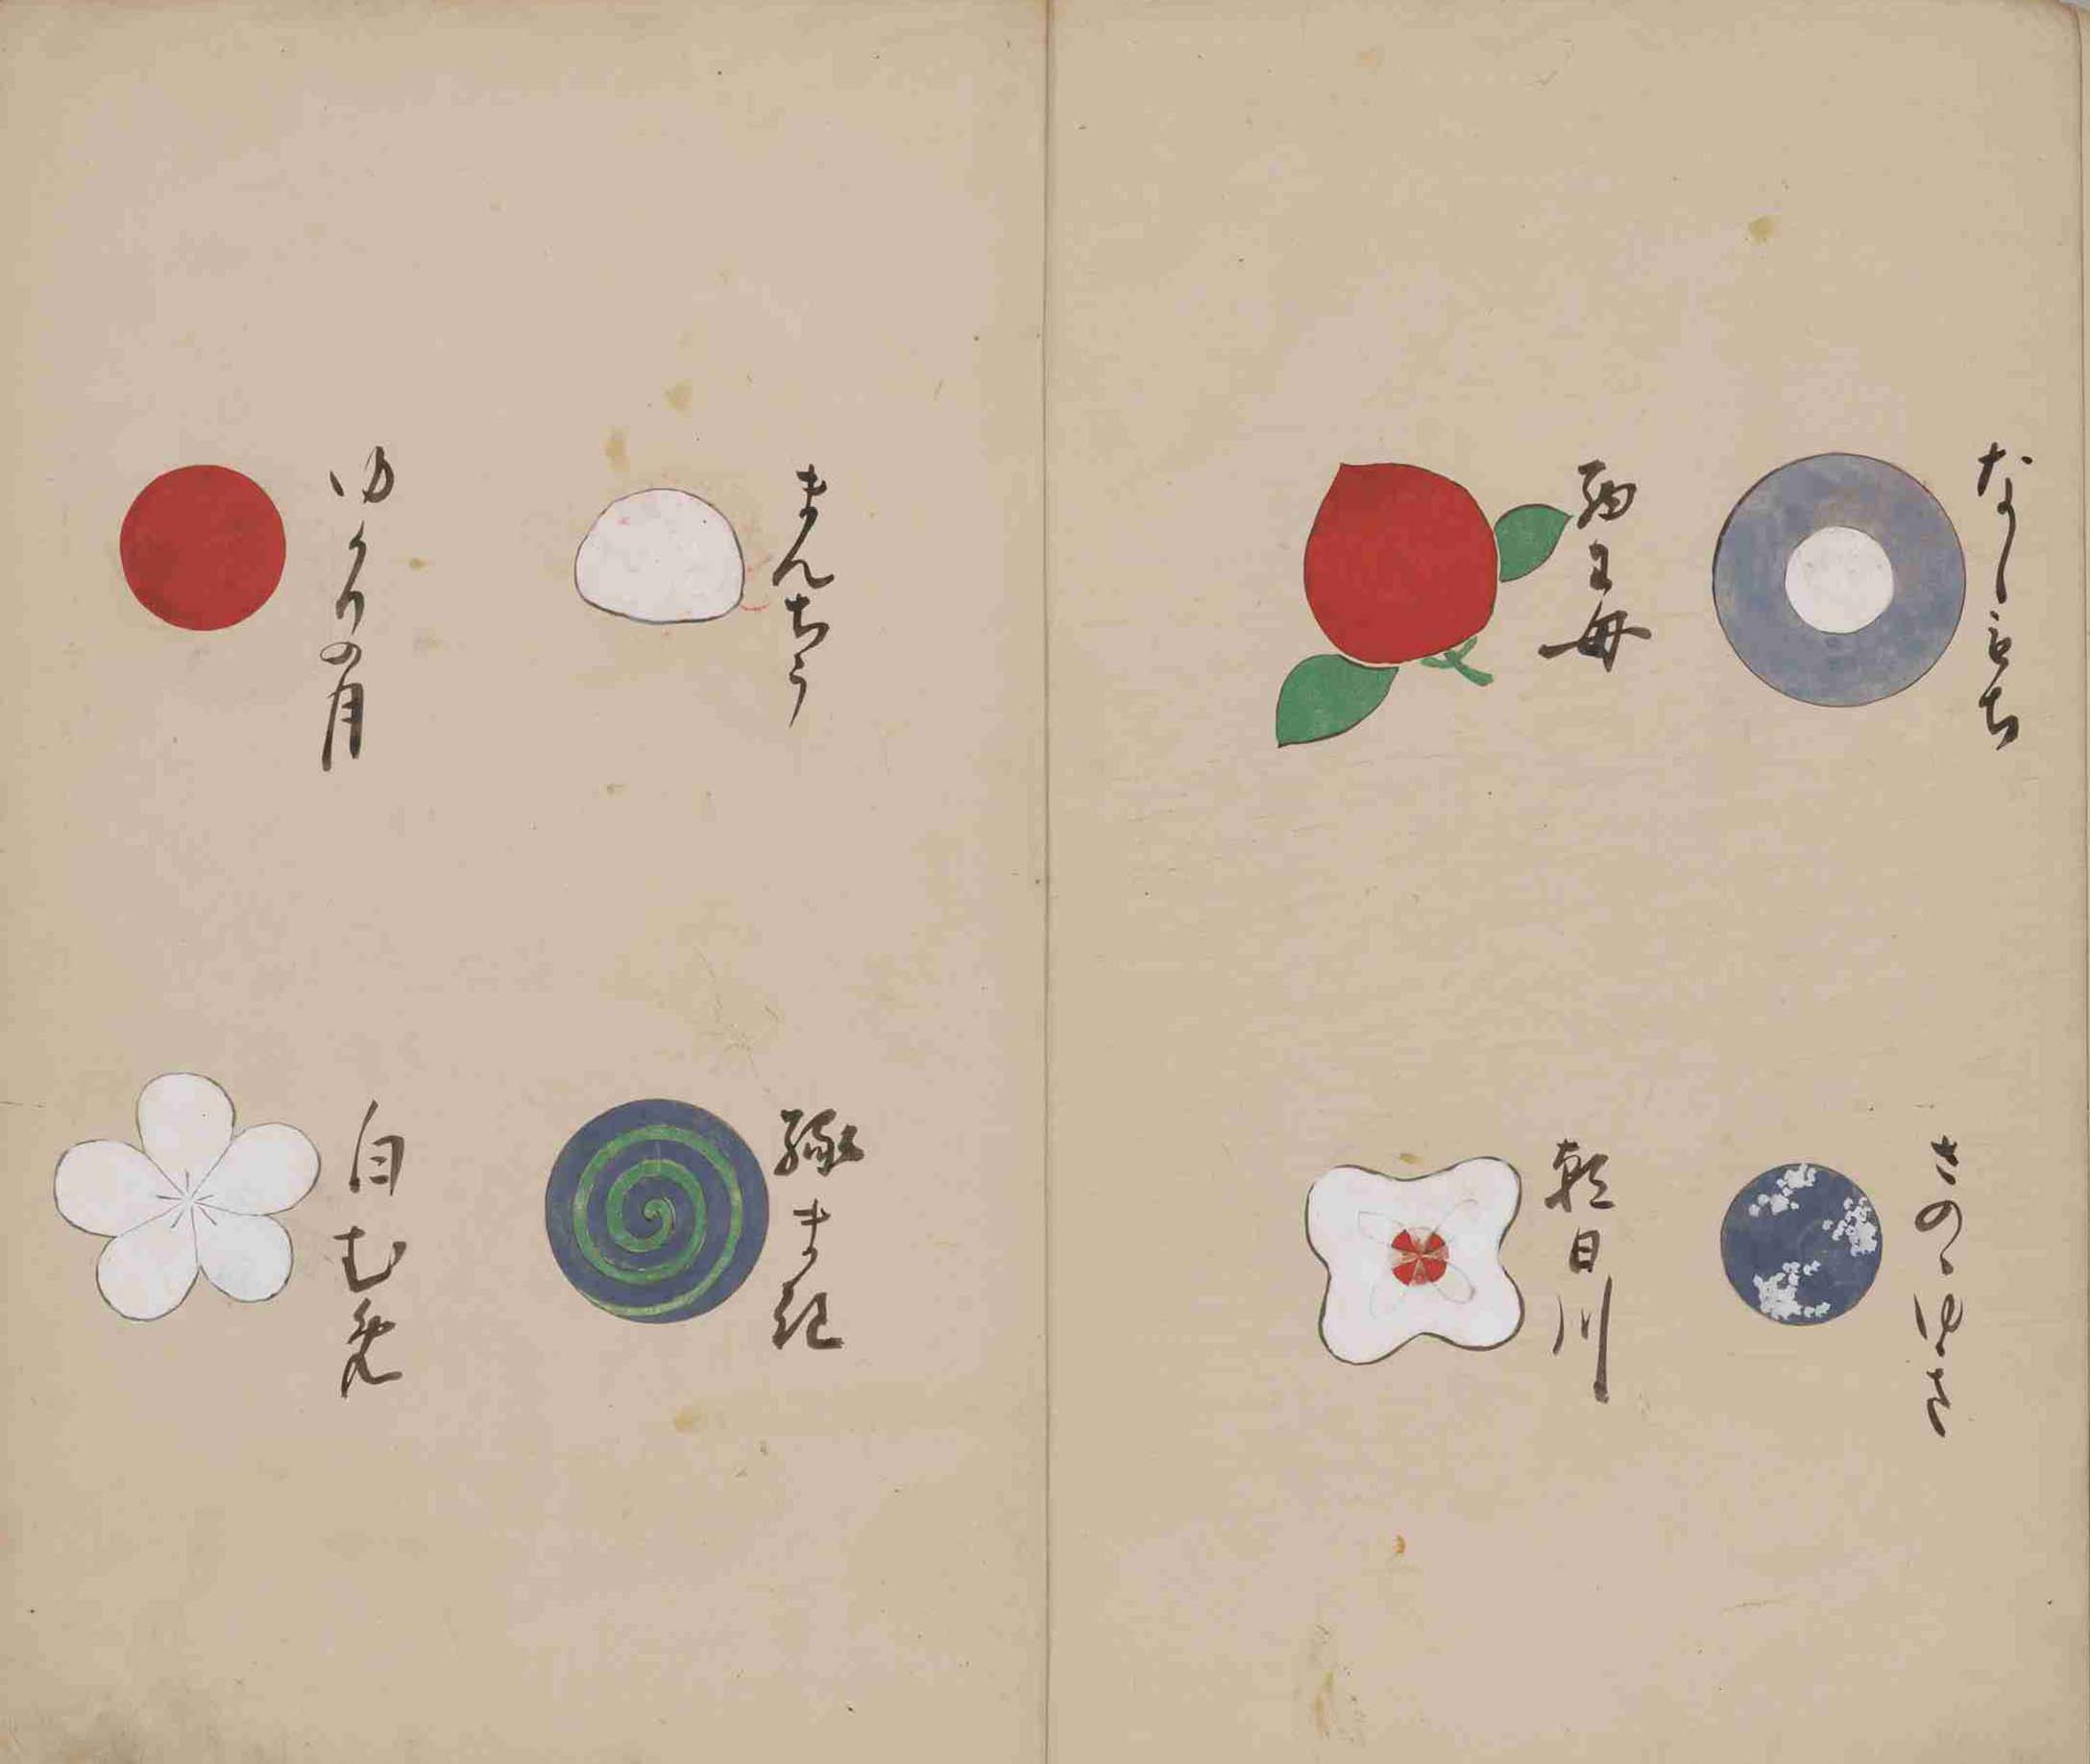 ながしもち
西王母
さのゝゆき
朝日川
まんちう
ゆかりの月
緑まき
白むめ